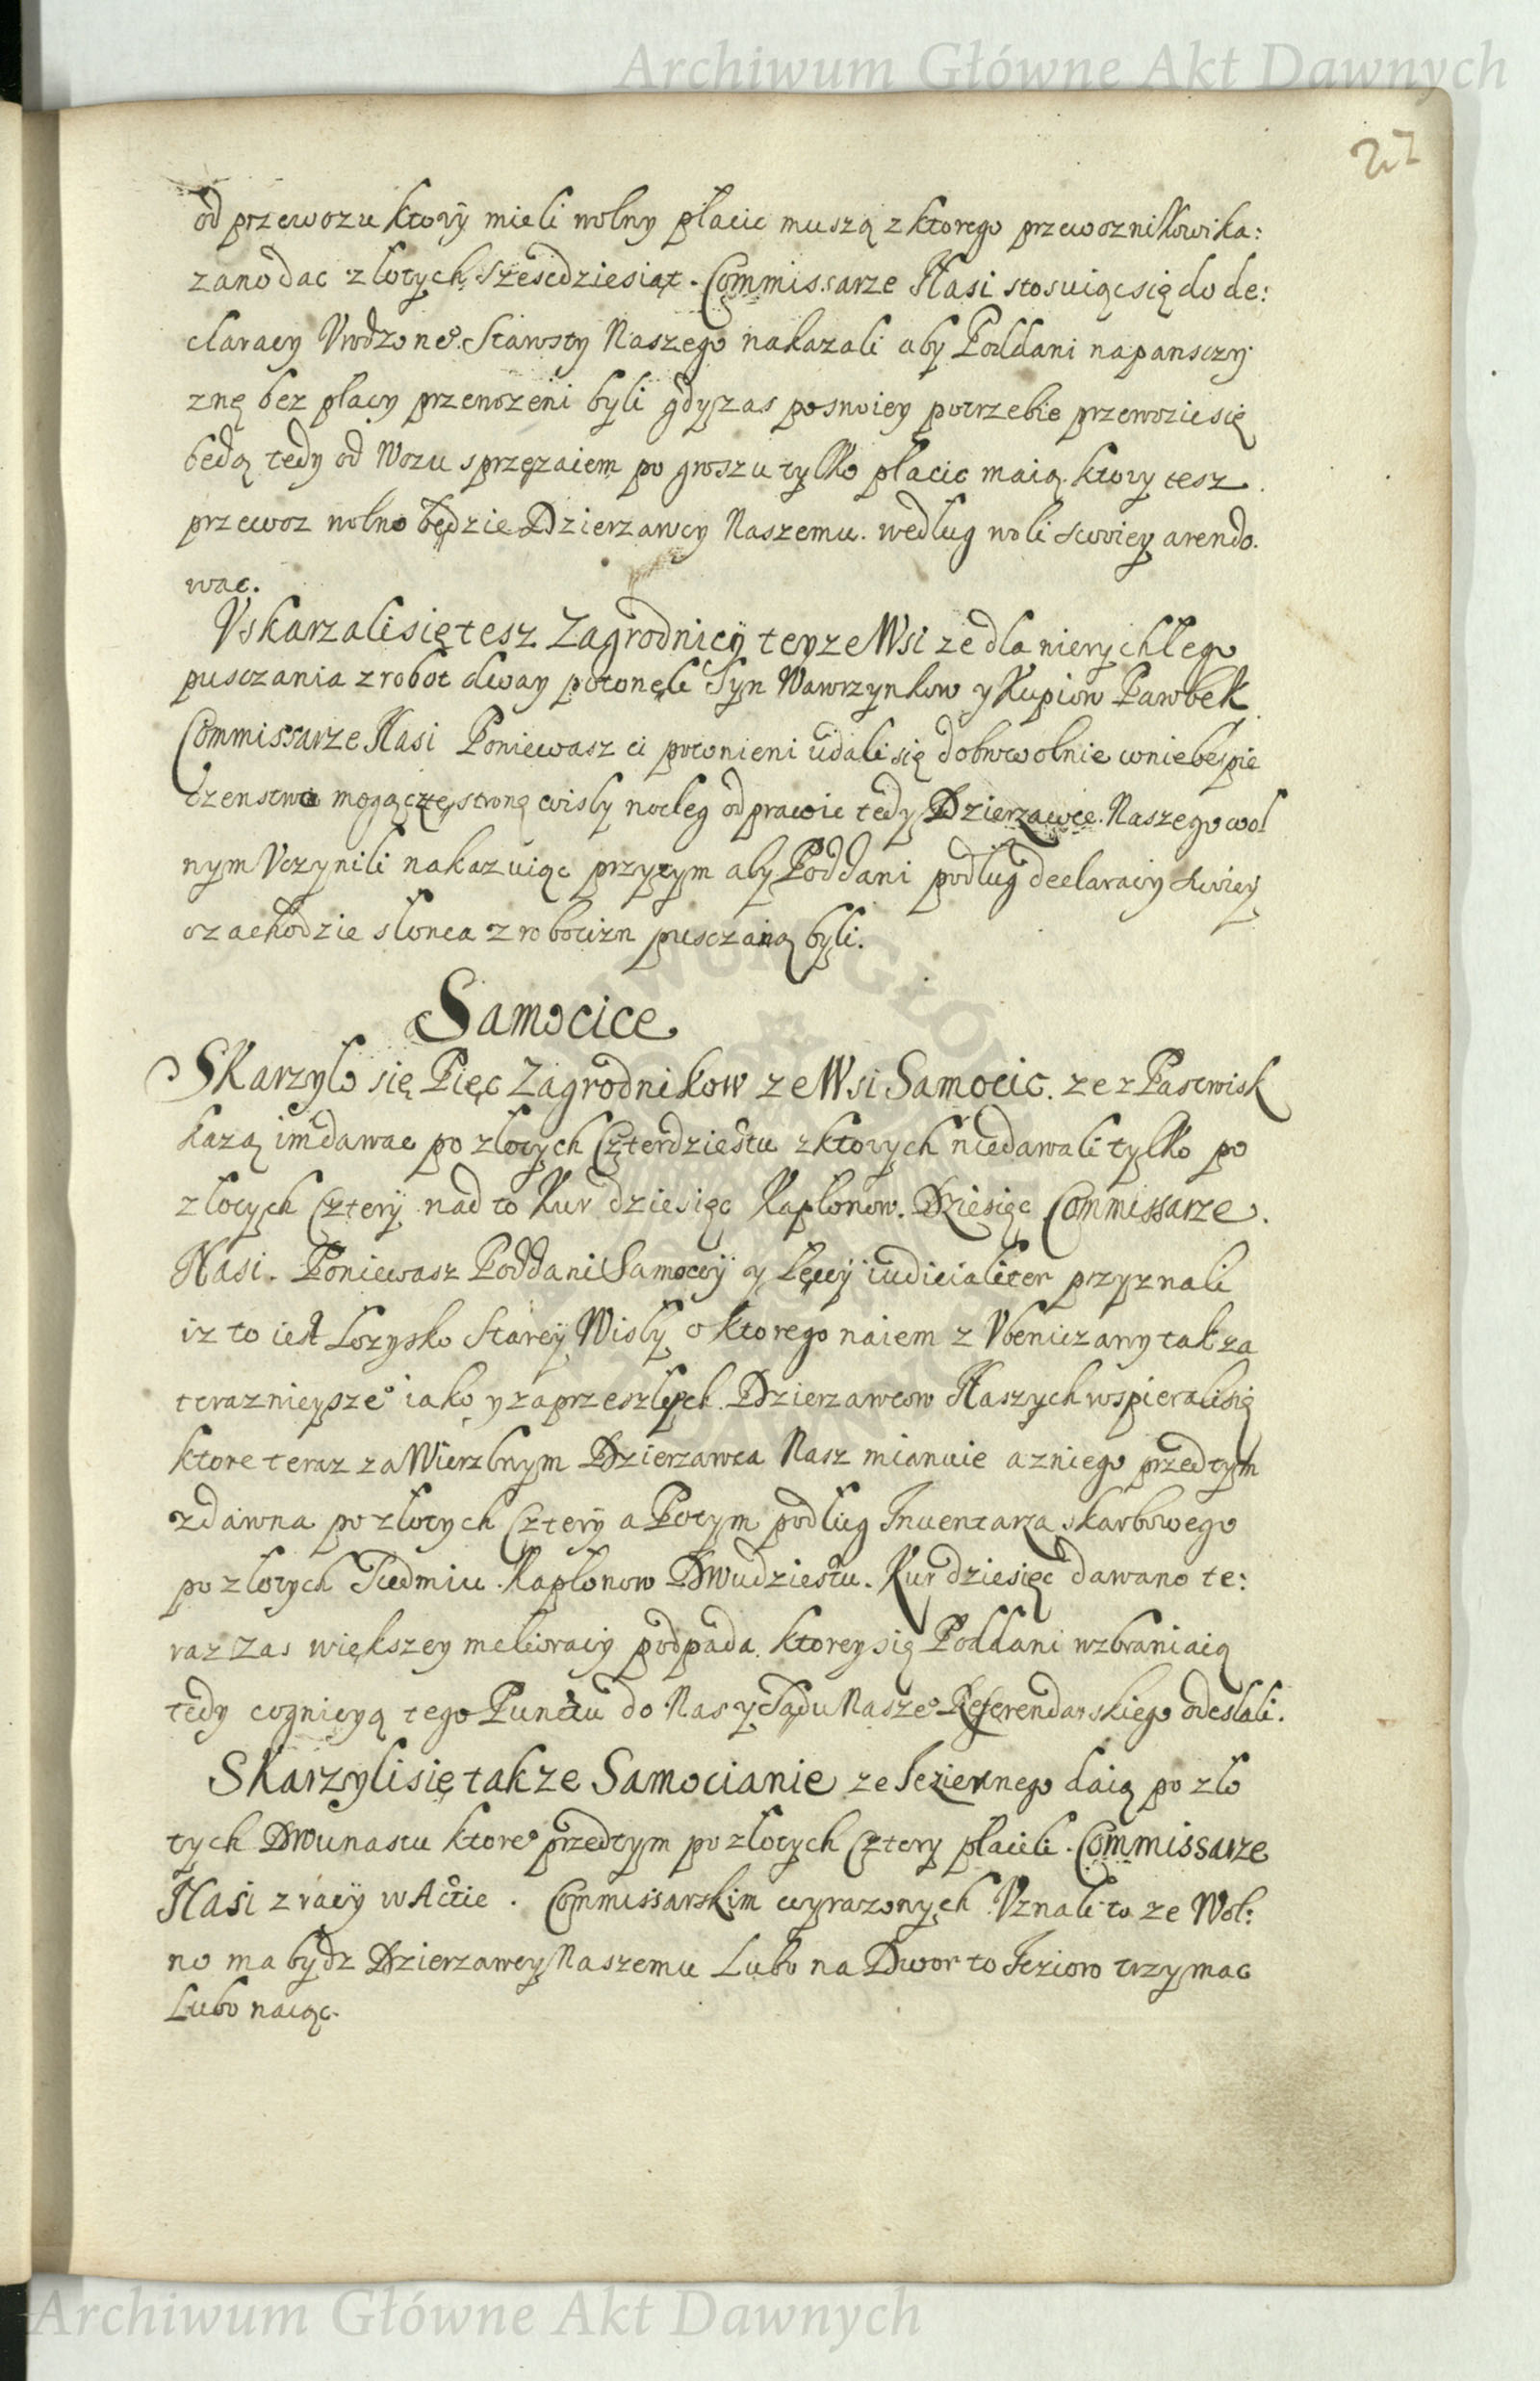 Archiwum Główne Akt Dawnych
27
od przewozu ktory mieli wolny płacic muszą z ktorego przewoznikowi ka:
zano dac złotych Szescdziesiąt. Commissarze Nasi stosuiąc się do de:
claracy Vrodzone° Starosty Naszego nakazali aby Poddani na panszczy
znę bez płacy przewozeni byli gdy zas po swoiey potrzebie przewozic się
będą tedy od Wozu sprzęzaiem po groszu tylko płacic maią. ktory tesz
przewoz wolno będzie Dzierzawcy Naszemu. według woli swoiey arendo.
wac.
Vskarzali się tesz Zagrodnicy teyze Wsi ze dla nierychłego
pusczania z robot dway potonęli Syn Wawrzynkow y Kupiow Parobek
Commissarze Nasi Poniewasz ci potonieni udali się dobrowolnie w niebespie
dzenstwo mogąc tę stroną wisły nocleg odprawic tedy Dzierzawcę Naszego wol
nym Vczynili nakazuiąc przytym aby Poddani podług declaracy swoiey
o zachodzie słonca z robocizn pusczani byli.
Samocice
Skarzyło się Pięc Zagrodnikow ze Wsi Samocic. ze z Pastwisk
kazą im dawac po złotych Czterdziestu z ktorych niedawali tylko po
złotych Cztery nad to Kur dziesięc Kapłonow. Dziesięc Commissarze.
Nasi. Poniewasz Poddani Samoccy y Łęccy iudicialiter przyznali
iz to iest Łozysko Starey Wisły o ktorego naiem z Vbeniczany tak za
teraznieysze° iako y za przeszłych Dzierzawcow Naszych wspierali się
ktore teraz za Wierzbnym Dzierzawca Nasz mianuie a z niego przedtym
zdawna po złotych Cztery a Potym podług Inuentarza skarbowego
po złotych Siedmiu. Kapłonow Dwudziestu. Kur dziesięc dawano te:
raz zas większey melioracy podpada. ktorey się Poddani wzbraniaią
tedy cognicyą tego Punctu do Nas y Sądu Nasze° Referendarskiego odesłali.
Skarzyli się takze Samocianie ze Ieziernego daią po zło
tych Dwunastu ktore° przedtym po złotych Cztery płacili. Commissarze
Nasi z racy w Actie. Commissarskim wyrazonych Vznali to ze Wol:
no ma bydz Dzierzawcy Naszemu Lubo na Dwor to Iezioro trzymac
Lubo naiąc.
Archiwum Główne Akt Dawnych